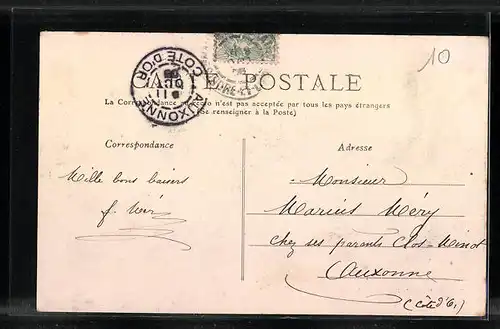 10
POSTALE
La Correspondance au recto n'est pas acceptée par tous les pays étrangers
(Se renseigner à la Poste)
AUXONNE
COTE D'OR
Correspondance
Adresse
Mille bons baisers
Monsieur
Marius Méry
chez ses parents Clos-Minot
Auxonne
(Côte d'Or)